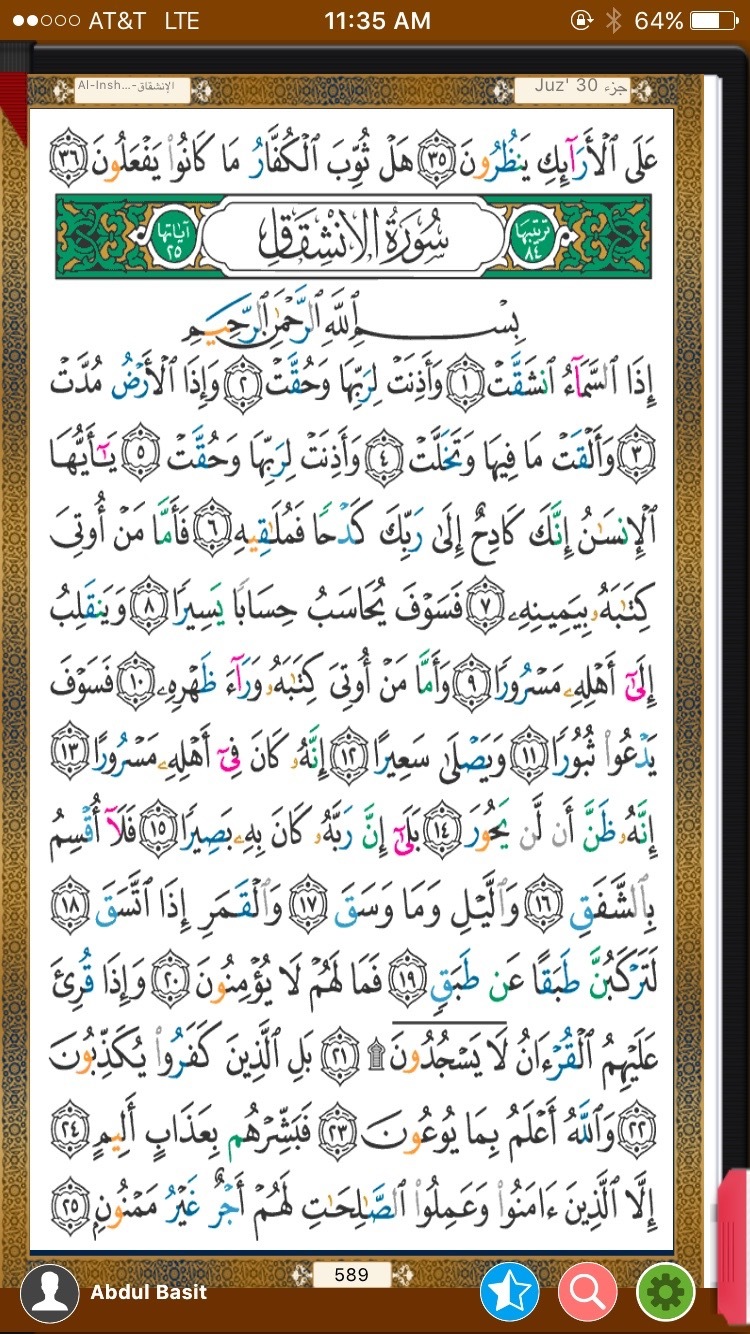 AT&T LTE 11:35 AM 64%
Al-Insh...-الإنشقاق Juz' 30 جزء
عَلَى ٱلْأَرَآئِكِ يَنظُرُونَ ٣٥ هَلْ ثُوِّبَ ٱلْكُفَّارُ مَا كَانُوا۟ يَفْعَلُونَ ٣٦
ترتيبها ٨٤ سُورَةُ الانْشِقَاقِ آياتها ٢٥
بِسْمِ ٱللَّهِ ٱلرَّحْمَٰنِ ٱلرَّحِيمِ
إِذَا ٱلسَّمَآءُ ٱنشَقَّتْ ١ وَأَذِنَتْ لِرَبِّهَا وَحُقَّتْ ٢ وَإِذَا ٱلْأَرْضُ مُدَّتْ
٣ وَأَلْقَتْ مَا فِيهَا وَتَخَلَّتْ ٤ وَأَذِنَتْ لِرَبِّهَا وَحُقَّتْ ٥ يَٰٓأَيُّهَا
ٱلْإِنسَٰنُ إِنَّكَ كَادِحٌ إِلَىٰ رَبِّكَ كَدْحًا فَمُلَٰقِيهِ ٦ فَأَمَّا مَنْ أُوتِىَ
كِتَٰبَهُۥ بِيَمِينِهِۦ ٧ فَسَوْفَ يُحَاسَبُ حِسَابًا يَسِيرًا ٨ وَيَنقَلِبُ
إِلَىٰٓ أَهْلِهِۦ مَسْرُورًا ٩ وَأَمَّا مَنْ أُوتِىَ كِتَٰبَهُۥ وَرَآءَ ظَهْرِهِۦ ١٠ فَسَوْفَ
يَدْعُوا۟ ثُبُورًا ١١ وَيَصْلَىٰ سَعِيرًا ١٢ إِنَّهُۥ كَانَ فِىٓ أَهْلِهِۦ مَسْرُورًا ١٣
إِنَّهُۥ ظَنَّ أَن لَّن يَحُورَ ١٤ بَلَىٰٓ إِنَّ رَبَّهُۥ كَانَ بِهِۦ بَصِيرًا ١٥ فَلَآ أُقْسِمُ
بِٱلشَّفَقِ ١٦ وَٱلَّيْلِ وَمَا وَسَقَ ١٧ وَٱلْقَمَرِ إِذَا ٱتَّسَقَ ١٨
لَتَرْكَبُنَّ طَبَقًا عَن طَبَقٍ ١٩ فَمَا لَهُمْ لَا يُؤْمِنُونَ ٢٠ وَإِذَا قُرِئَ
عَلَيْهِمُ ٱلْقُرْءَانُ لَا يَسْجُدُونَ ۩ ٢١ بَلِ ٱلَّذِينَ كَفَرُوا۟ يُكَذِّبُونَ
٢٢ وَٱللَّهُ أَعْلَمُ بِمَا يُوعُونَ ٢٣ فَبَشِّرْهُم بِعَذَابٍ أَلِيمٍ ٢٤
إِلَّا ٱلَّذِينَ ءَامَنُوا۟ وَعَمِلُوا۟ ٱلصَّٰلِحَٰتِ لَهُمْ أَجْرٌ غَيْرُ مَمْنُونٍۭ ٢٥
589
Abdul Basit